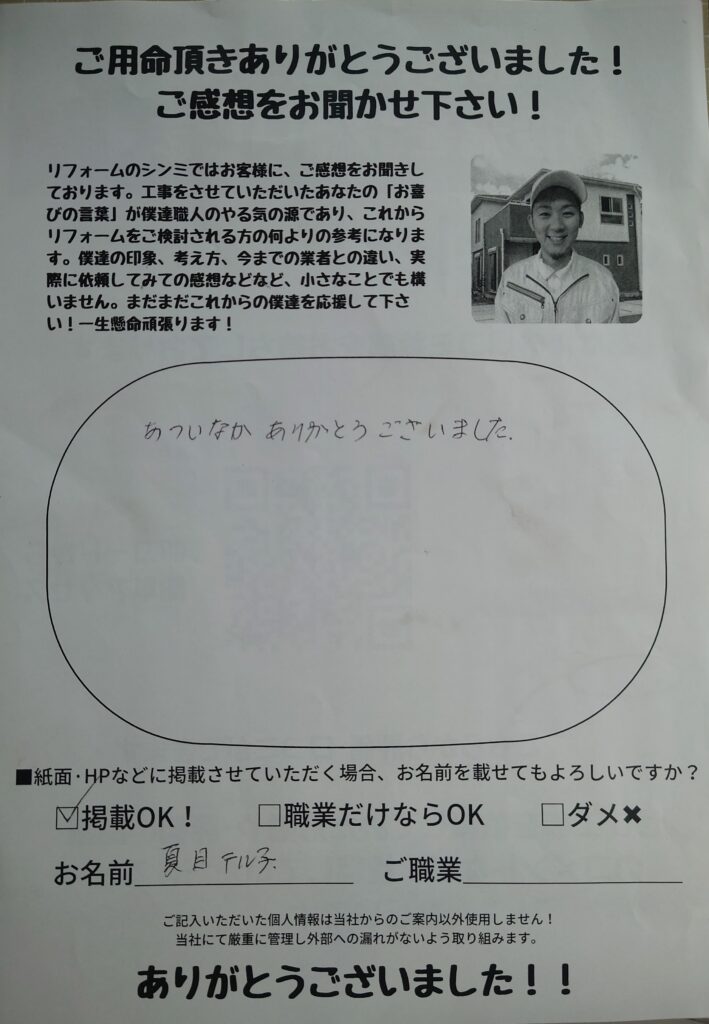 ご用命頂きありがとうございました！
ご感想をお聞かせ下さい！
リフォームのシンミではお客様に、ご感想をお聞きし
ております。工事をさせていただいたあなたの「お喜
びの言葉」が僕達職人のやる気の源であり、これから
リフォームをご検討される方の何よりの参考になりま
す。僕達の印象、考え方、今までの業者との違い、実
際に依頼してみての感想などなど、小さなことでも構
いません。まだまだこれからの僕達を応援して下さ
い！一生懸命頑張ります！
あついなか ありがとうございました.
■紙面・HPなどに掲載させていただく場合、お名前を載せてもよろしいですか？
☑掲載OK！ □職業だけならOK □ダメ✖
お名前 夏目テル子 ご職業
ご記入いただいた個人情報は当社からのご案内以外使用しません！
当社にて厳重に管理し外部への漏れがないよう取り組みます。
ありがとうございました！！